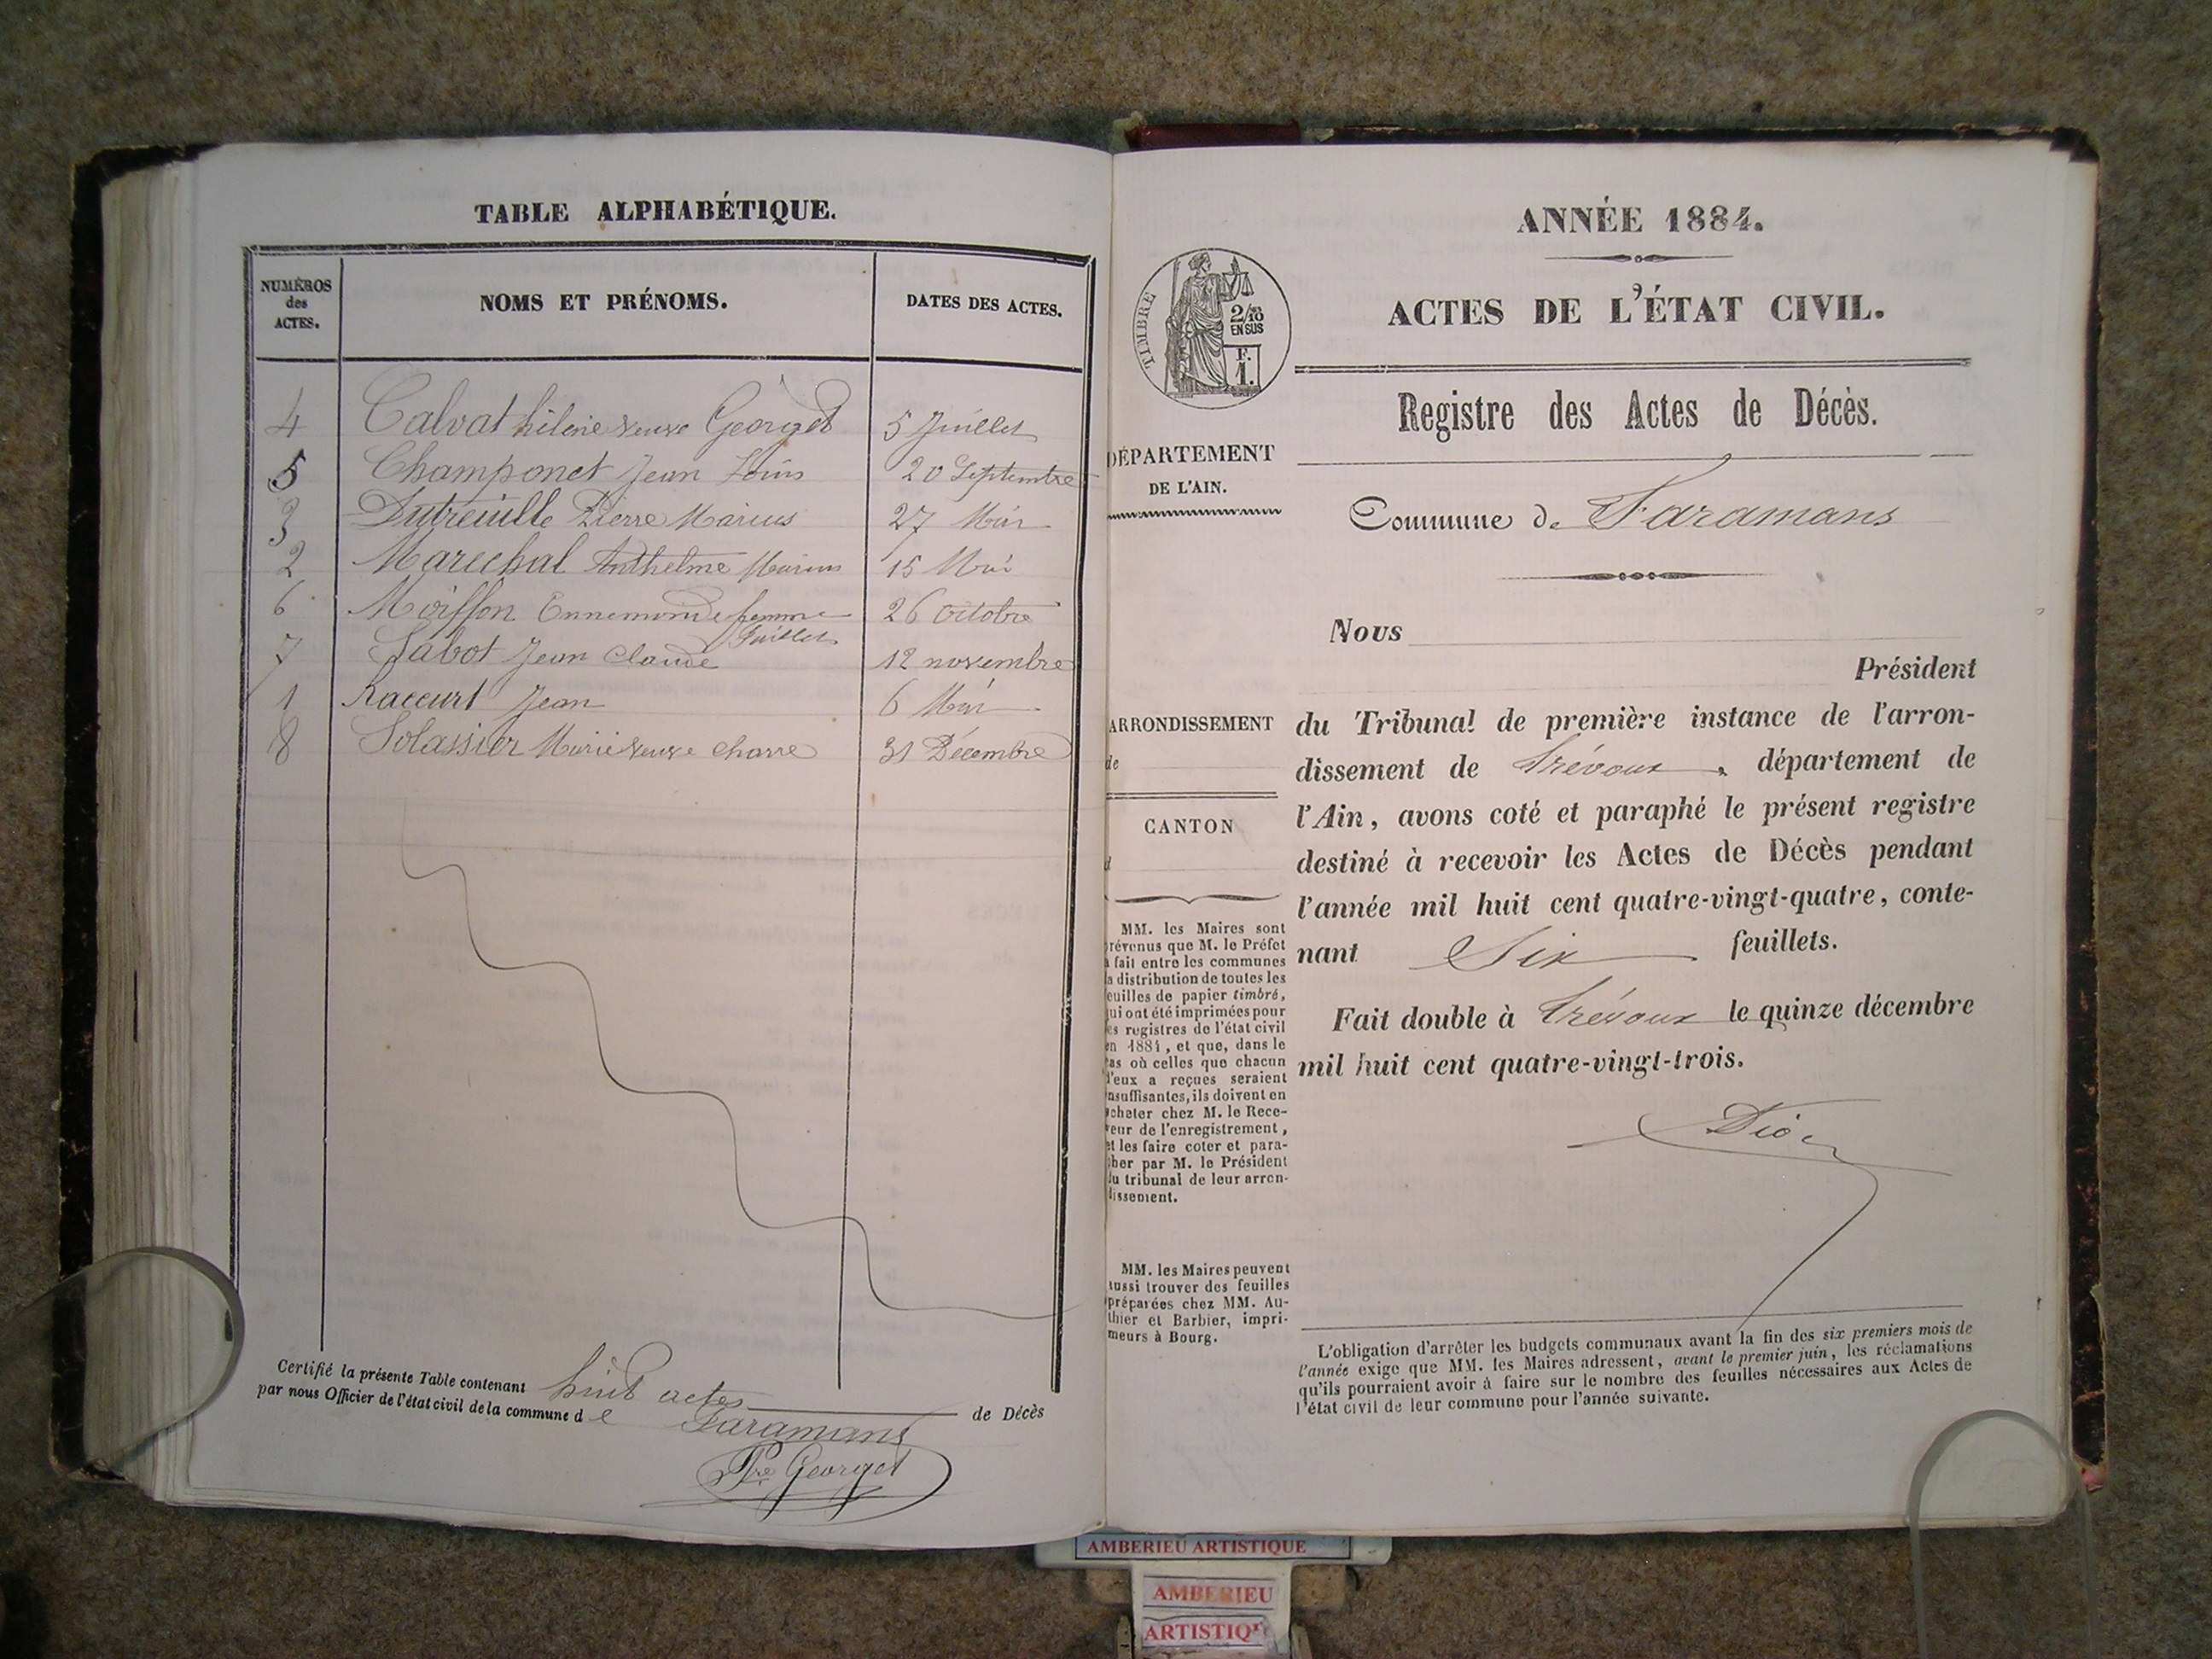 TABLE ALPHABÉTIQUE.
NUMÉROS
des
ACTES.
NOMS ET PRÉNOMS.
DATES DES ACTES.
4 Calvat hélène veuve Georget 5 Juillet
5 Champonet Jean Louis 20 Septembre
3 Dutreuille Pierre Marius 27 Mai
2 Marechal Anthelme Marius 15 Mai
6 Moiffon Ennemonde femme 26 Octobre
Juillet
7 Sabot Jean Claude 12 novembre
1 Raccurt Jean 6 Mai
8 Solassier Marie veuve Charre 31 Décembre
Certifié la présente Table contenant huit actes de Décès
par nous Officier de l'état civil de la commune de Faramans
Pre Georget
ANNÉE 1884.
ACTES DE L'ÉTAT CIVIL.
TIMBRE
2/10
EN SUS
F.
1.
Registre des Actes de Décès.
DÉPARTEMENT
DE L'AIN.
Commune de Faramans
Nous
Président
ARRONDISSEMENT
de
CANTON
d
du Tribunal de première instance de l'arron-
dissement de Trévoux, département de
l'Ain, avons coté et paraphé le présent registre
destiné à recevoir les Actes de Décès pendant
l'année mil huit cent quatre-vingt-quatre, conte-
nant Six feuillets.
Fait double à Trévoux le quinze décembre
mil huit cent quatre-vingt-trois.
MM. les Maires sont
prévenus que M. le Préfet
a fait entre les communes
la distribution de toutes les
feuilles de papier timbré,
qui ont été imprimées pour
les registres de l'état civil
en 1884, et que, dans le
cas où celles que chacun
d'eux a reçues seraient
insuffisantes, ils doivent en
acheter chez M. le Rece-
veur de l'enregistrement,
et les faire coter et para-
pher par M. le Président
du tribunal de leur arron-
dissement.
MM. les Maires peuvent
aussi trouver des feuilles
préparées chez MM. Au-
thier et Barbier, impri-
meurs à Bourg.
L'obligation d'arrêter les budgets communaux avant la fin des six premiers mois de
l'année exige que MM. les Maires adressent, avant le premier juin, les réclamations
qu'ils pourraient avoir à faire sur le nombre des feuilles nécessaires aux Actes de
l'état civil de leur commune pour l'année suivante.
AMBERIEU ARTISTIQUE
AMBERIEU
ARTISTIQ